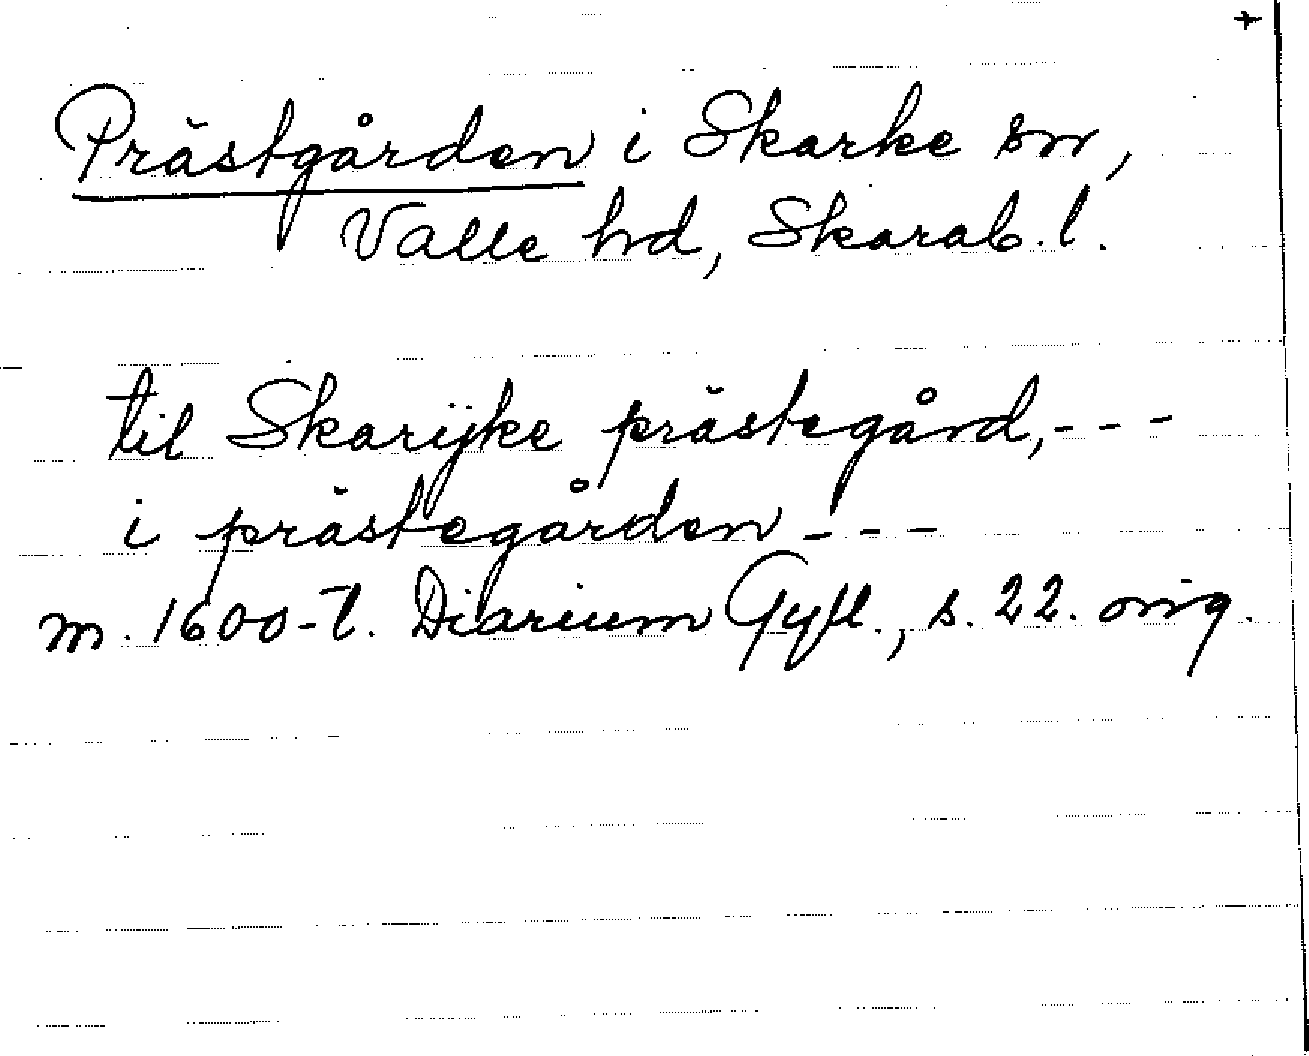 +
Prästgården i Skarke sn,
Valle hd, Skarab. l.
til Skarÿke prästegård, - - -
i prästegården - - -
m. 1600-t. Diarium Gyll., s. 22. orig.